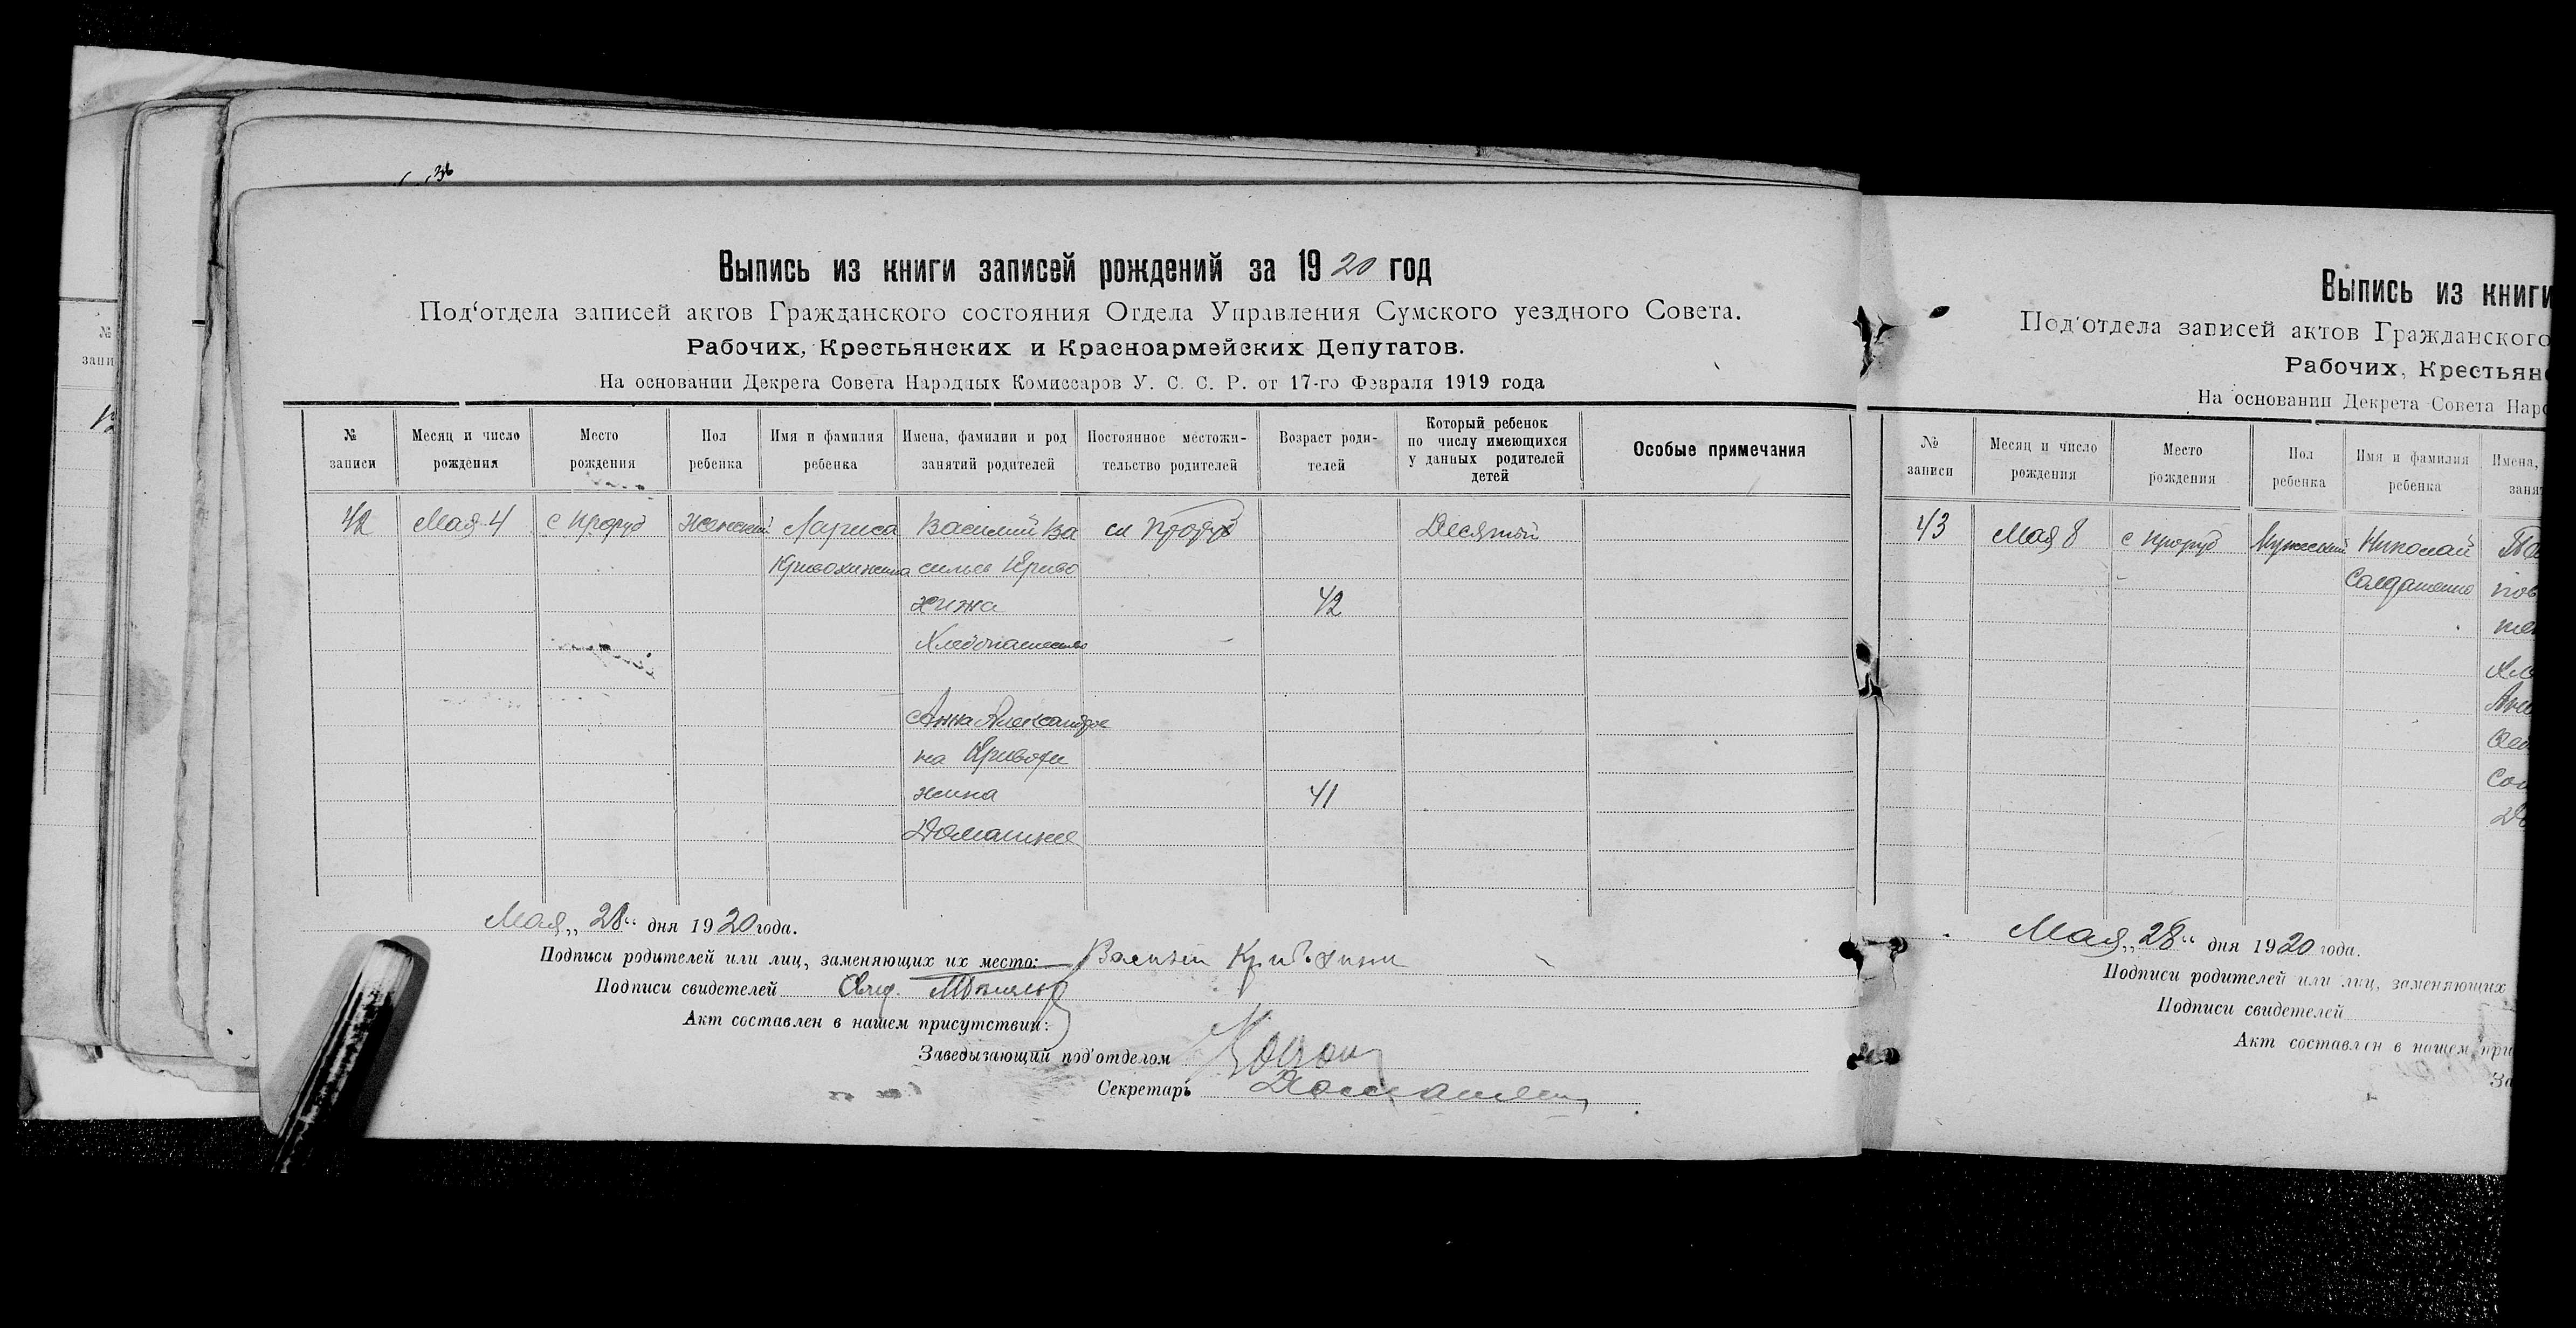 36
Выпись из книги записей рождений за 1920 год
Под'отдела записей актов Гражданского состояния Отдела Управления Сумского уездного Совета.
Рабочих, Крестьянских и Красноармейских Депутатов.
На основании Декрета Совета Народных Комиссаров У. С. С. Р. от 17-го Февраля 1919 года
№ записи
Месяц и число рождения
Место рождения
Пол ребенка
Имя и фамилия ребенка
Имена, фамилии и род занятий родителей
Постоянное местожительство родителей
Возраст родителей
Который ребенок по числу имеющихся у данных родителей детей
Особые примечания
42
Мая 4
с Проруб
Женский
Лариса
Василий Ва
сильев Криво
хижа
Хлебопашество
Анна Александров
на Кривохи
жина
Домашнее
сл Проруб
42
41
Десятый
Мая „28“ дня 1920 года.
Подписи родителей или лиц, заменяющих их место:
Подписи свидетелей
Акт составлен в нашем присутствии:
Заведывающий под'отделом
Секретарь
Выпись из книги
Под'отдела записей актов Гражданского
Рабочих, Крестьян
На основании Декрета Совета Наро
№ записи
Месяц и число рождения
Место рождения
Пол ребенка
Имя и фамилия ребенка
Имена,
занят
43
Мая 8
с Проруб
Мужеский
Николай
Солдатенко
Мая „28“ дня 1920 года.
Подписи родителей или лиц, заменяющих
Подписи свидетелей
Акт составлен в нашем при
За